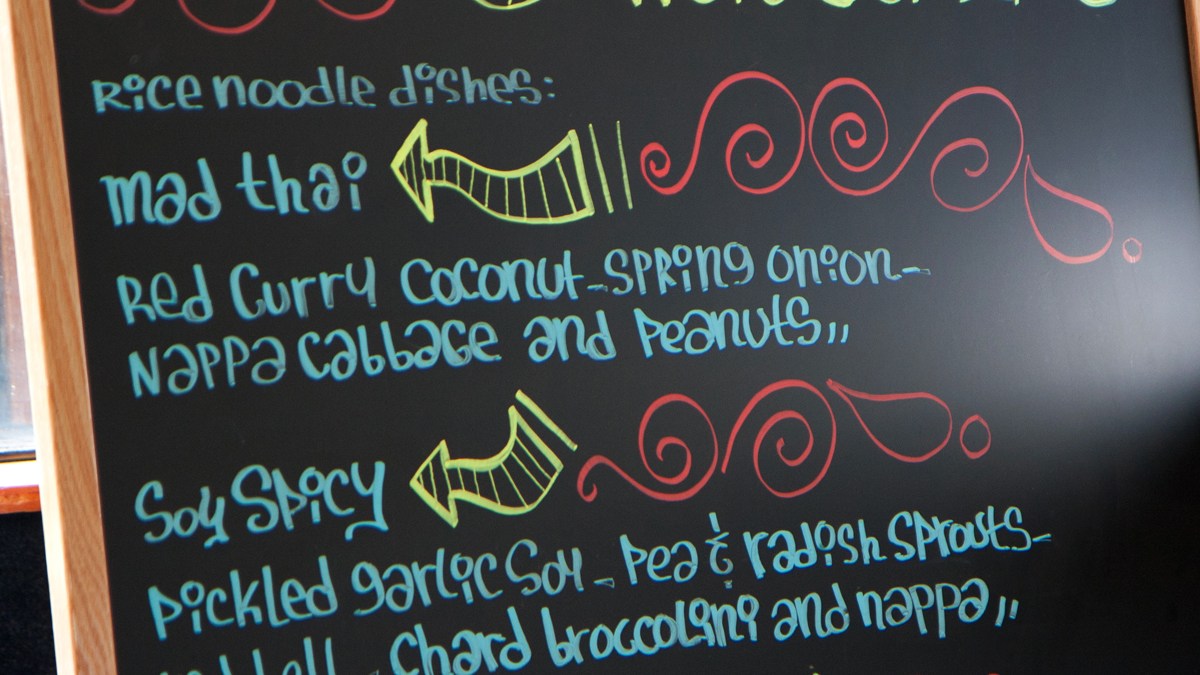 Rice noodle dishes:
mad thai
Red Curry Coconut - spring onion -
Nappa Cabbage and Peanuts,,
Soy Spicy
pickled garlic Soy - Pea & radish sprouts -
- chard broccolini and nappa,,